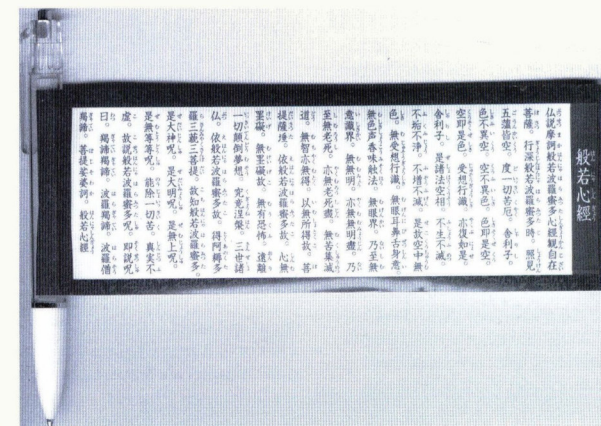 般若心經
仏説摩訶般若波羅蜜多心經観自在
菩薩。行深般若波羅蜜多時。照見
五蘊皆空。度一切苦厄。舎利子。
色不異空。空不異色。色即是空。
空即是色。受想行識。亦復如是。
舎利子。是諸法空相。不生不滅。
不垢不浄。不増不減。是故空中無
色。無受想行識。無眼耳鼻舌身意。
無色声香味触法。無眼界。乃至無
意識界。無無明。亦無無明盡。乃
至無老死。亦無老死盡。無苦集滅
道。無智亦無得。以無所得故。菩
提薩埵。依般若波羅蜜多故。心無
罣礙。無罣礙故。無有恐怖。遠離
一切顛倒夢想。究竟涅槃。三世諸
仏。依般若波羅蜜多故。得阿耨多
羅三藐三菩提。故知般若波羅蜜多。
是大神呪。是大明呪。是無上呪。
是無等等呪。能除一切苦。真実不
虚。故説般若波羅蜜多呪。即説呪
曰。羯諦羯諦。波羅羯諦。波羅僧
羯諦。菩提娑婆訶。般若心經